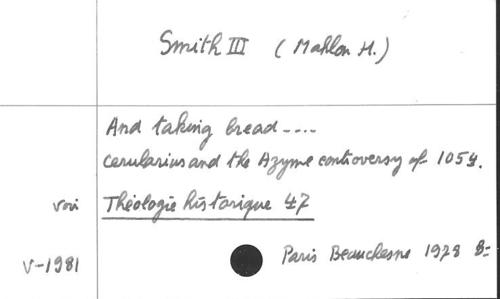 Smith III (Mahlon H.)
And taking bread....
Cerularius and the Azyme controversy of 1054.
voir Théologie historique 47
V-1981
Paris Beauchesne 1978 8=